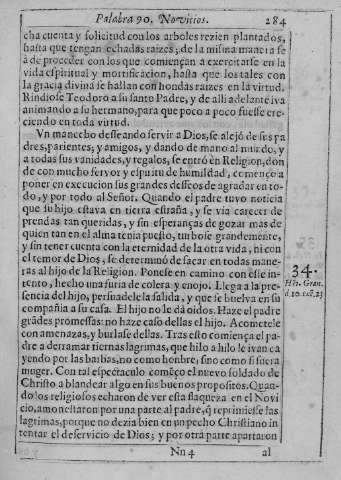 Palabra 90. Novicios. 284
cha cuenta y solicitud con los arboles rezien plantados,
hasta que tengan echadas raizes; de la misma manera se
à de proceder con los que comiençan a exercitarse en la
vida espiritual y mortificacion, hasta que los tales con
la gracia divina se hallan con hondas raizes en la virtud.
Rindiose Teodoro a su santo Padre, y de alli adelante iva
animando a su hermano, para que poco a poco fuesse cre-
ciendo en toda virtud.
Vn mancebo desseando servir a Dios, se alejò de sus pa
dres, parientes, y amigos, y dando de mano al mundo, y
a todas sus vanidades, y regalos, se entrò en Religion, don
de con mucho fervor y espiritu de humildad, començo a
poner en execucion sus grandes desseos de agradar en to-
do, y por todo al Señor. Quando el padre tuvo noticia
que su hijo estava en tierra estraña, y se via carecer de
prendas tan queridas, y sin esperanças de gozar mas de
quien tan en el alma tenia puesto, un boie grandemente,
y sin tener cuenta con la eternidad de la otra vida, ni con
el temor de Dios, se determinò de sacar en todas mane-
ras al hijo de la Religion. Ponese en camino con este in-
tento, hecho una furia de colera y enojo. Llega a la pre-
sencia del hijo, persuadele la salida, y que se buelva en su
compañia a su casa. El hijo no le dà oidos. Haze el padre
grãdes promessas: no haze caso dellas el hijo. Acometele
con amenazas, y burlase dellas. Tras esto comiença el pa-
dre a derramar tiernas lagrimas, que hilo a hilo le ivan ca
yendo por las barbas, no como hombre, sino como si fuera
muger. Con tal espectaculo comẽço el nuevo soldado de
Christo a blandear algo en sus buenos propositos. Quan-
do los religiosos echaron de ver esta flaqueza en el Novi
cio, amonestaron por una parte al padre, q̃ reprimiesse las
lagrimas, porque no dezia bien en un pecho Christiano in
tentar el deservicio de Dios; y por otra parte apartaron
Nn 4 al
34.
Hier. Gran.